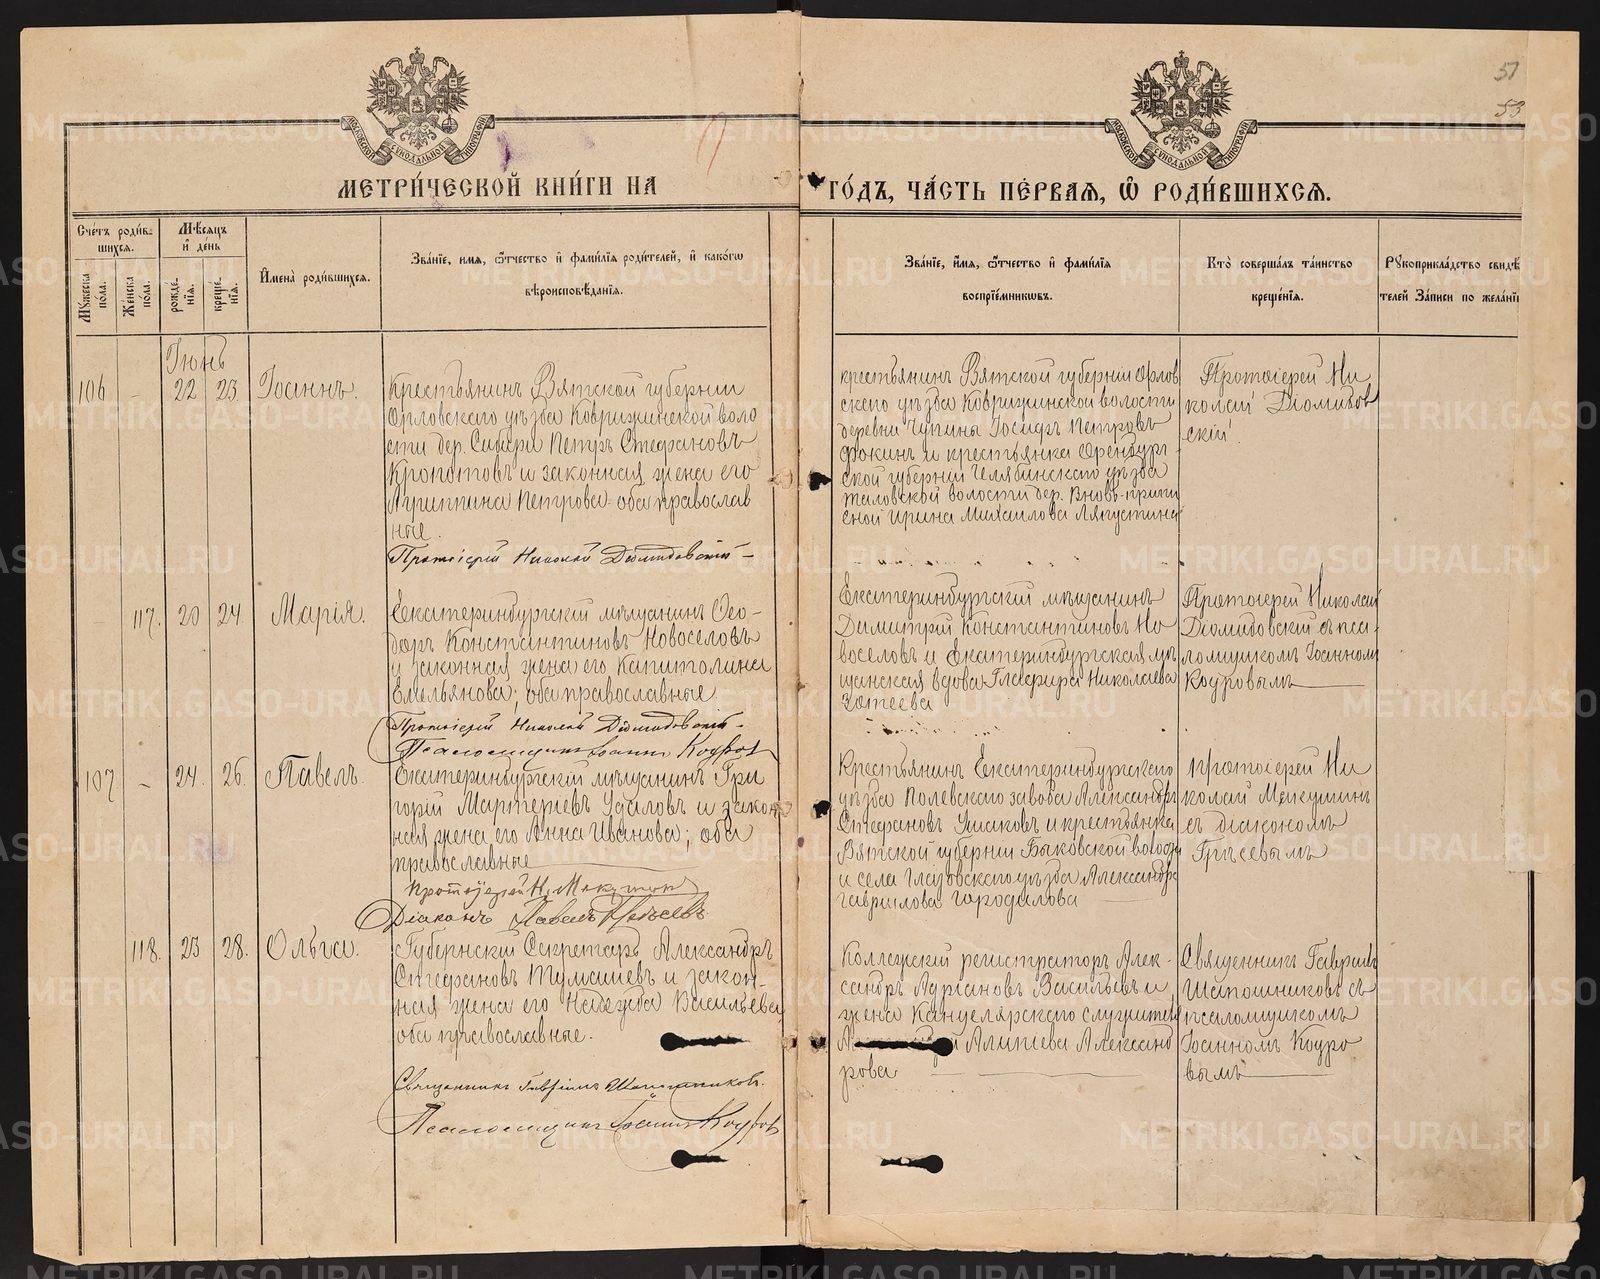 51
53
МОСКОВСКОЙ СѴНОДАЛЬНОЙ ТИПОГРАФІИ
МОСКОВСКОЙ СѴНОДАЛЬНОЙ ТИПОГРАФІИ
МЕТРИ́ЧЕСКОЙ КНИ́ГИ НА
ГО́ДЪ, ЧА́СТЬ ПЕ́РВАЯ, Ѽ РОДИ́ВШИХСЯ.
Сче́тъ роди́в-
шихся.
Мѣ́сяцъ
и҆ де́нь
Мꙋ́жеска
пола.
Же́нска
пола.
рожде́-
нїя.
креще́-
нїя.
И҆мена̀ роди́вшихся.
Зва́нїе, имя, ѻ҆́тчество и҆ фами́лїя роди́телей, и҆ како́гѡ
вѣроисповѣ́данїя.
Зва́нїе, и҆́мя, ѻ҆́тчество и҆ фами́лїя
воспрїе́мникѡвъ.
Кто̀ соверша́лъ та́инство
креще́нїя.
Рꙋкоприкла́дство свидѣ́
телей за́писи по жела́нї
Іюнь
106 - 22 23 Іоаннъ.
Крестьянинъ Вятской губерніи
Орловскаго уѣзда Ковригинской воло
сти дер. Сибери Петръ Стефановъ
Кропотовъ и законная жена его
Агриппина Петрова оба православ
ные.
Протоіерей Николай Діомидовскій
крестьянинъ Вятской губерніи Орлов
скаго уѣзда Ковригинской волости
деревни Чупины Іосифъ Петровъ
Фокинъ и крестьянка Оренбург
ской губерніи Челябинскаго уѣзда
волости дер. Вновь-припи
сной Ирина Михаилова Ляпустина
Протоіерей Ни
колай Діомидов
скій.
117. 20 24 Марія.
Екатеринбургскій мѣщанинъ Ѳео-
доръ Константиновъ Новоселовъ
и законная жена его Капитолина
Емельянова; оба православные
Протоіерей Николай Діомидовскій
Псаломщикъ Іоаннъ Коуров
Екатеринбургскій мѣщанинъ
Димитрій Константиновъ Но
воселовъ и Екатеринбургская мѣ
щанская вдова Глафира Николаева
Зотеева
Протоіерей Николай
Діомидовскій съ пса-
ломщикомъ Іоанномъ
Коуровымъ
107 - 24. 26. Павелъ.
Екатеринбургскій мѣщанинъ Гри
горій Мартеевъ Удаловъ и закон
ная жена его Анна Иванова; оба
православные
Протоіерей Н. Мекушинъ
Діаконъ Павелъ Гряевъ
Крестьянинъ Екатеринбургскаго
уѣзда Полевскаго завода Александръ
Стефановъ Ушаковъ и крестьянка
Вятской губерніи Быковской волости
и села Глазовскаго уѣзда Александра
Гаврилова Городилова
протоіерей Ни
колай Мекушинъ
съ діакономъ
118. 23 28. Ольга.
Губернскій Секретарь Александръ
Стефановъ Тумашевъ и закон-
ная жена его Надежда Васильева,
оба православные.
Священникъ Гавріилъ Шапошниковъ.
Псаломщикъ Іоаннъ Коуров
Коллежскій регистраторъ Алек-
сандръ Адріановъ Васильевъ и
жена Канцелярскаго служителя
Алипіева Александ
рова
Священникъ Гавріилъ
Шапошниковъ съ
псаломщикомъ
Іоанномъ Коуро
вымъ
METRIKI.GASO-URAL.RU